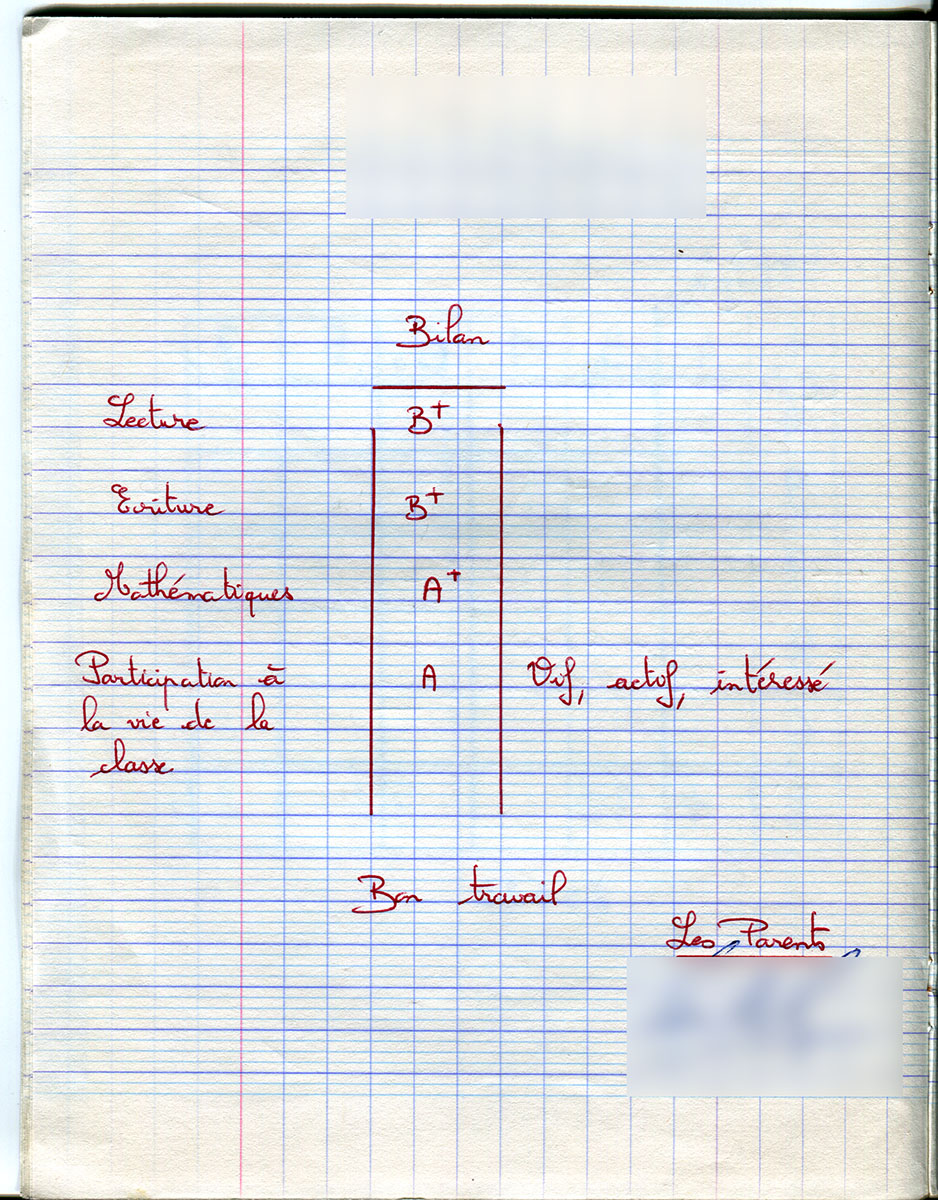 Bilan
Lecture B+
Ecriture B+
Mathématiques A+
Participation à A Vif, actif, intéressé
la vie de la
classe
Bon travail
Les Parents